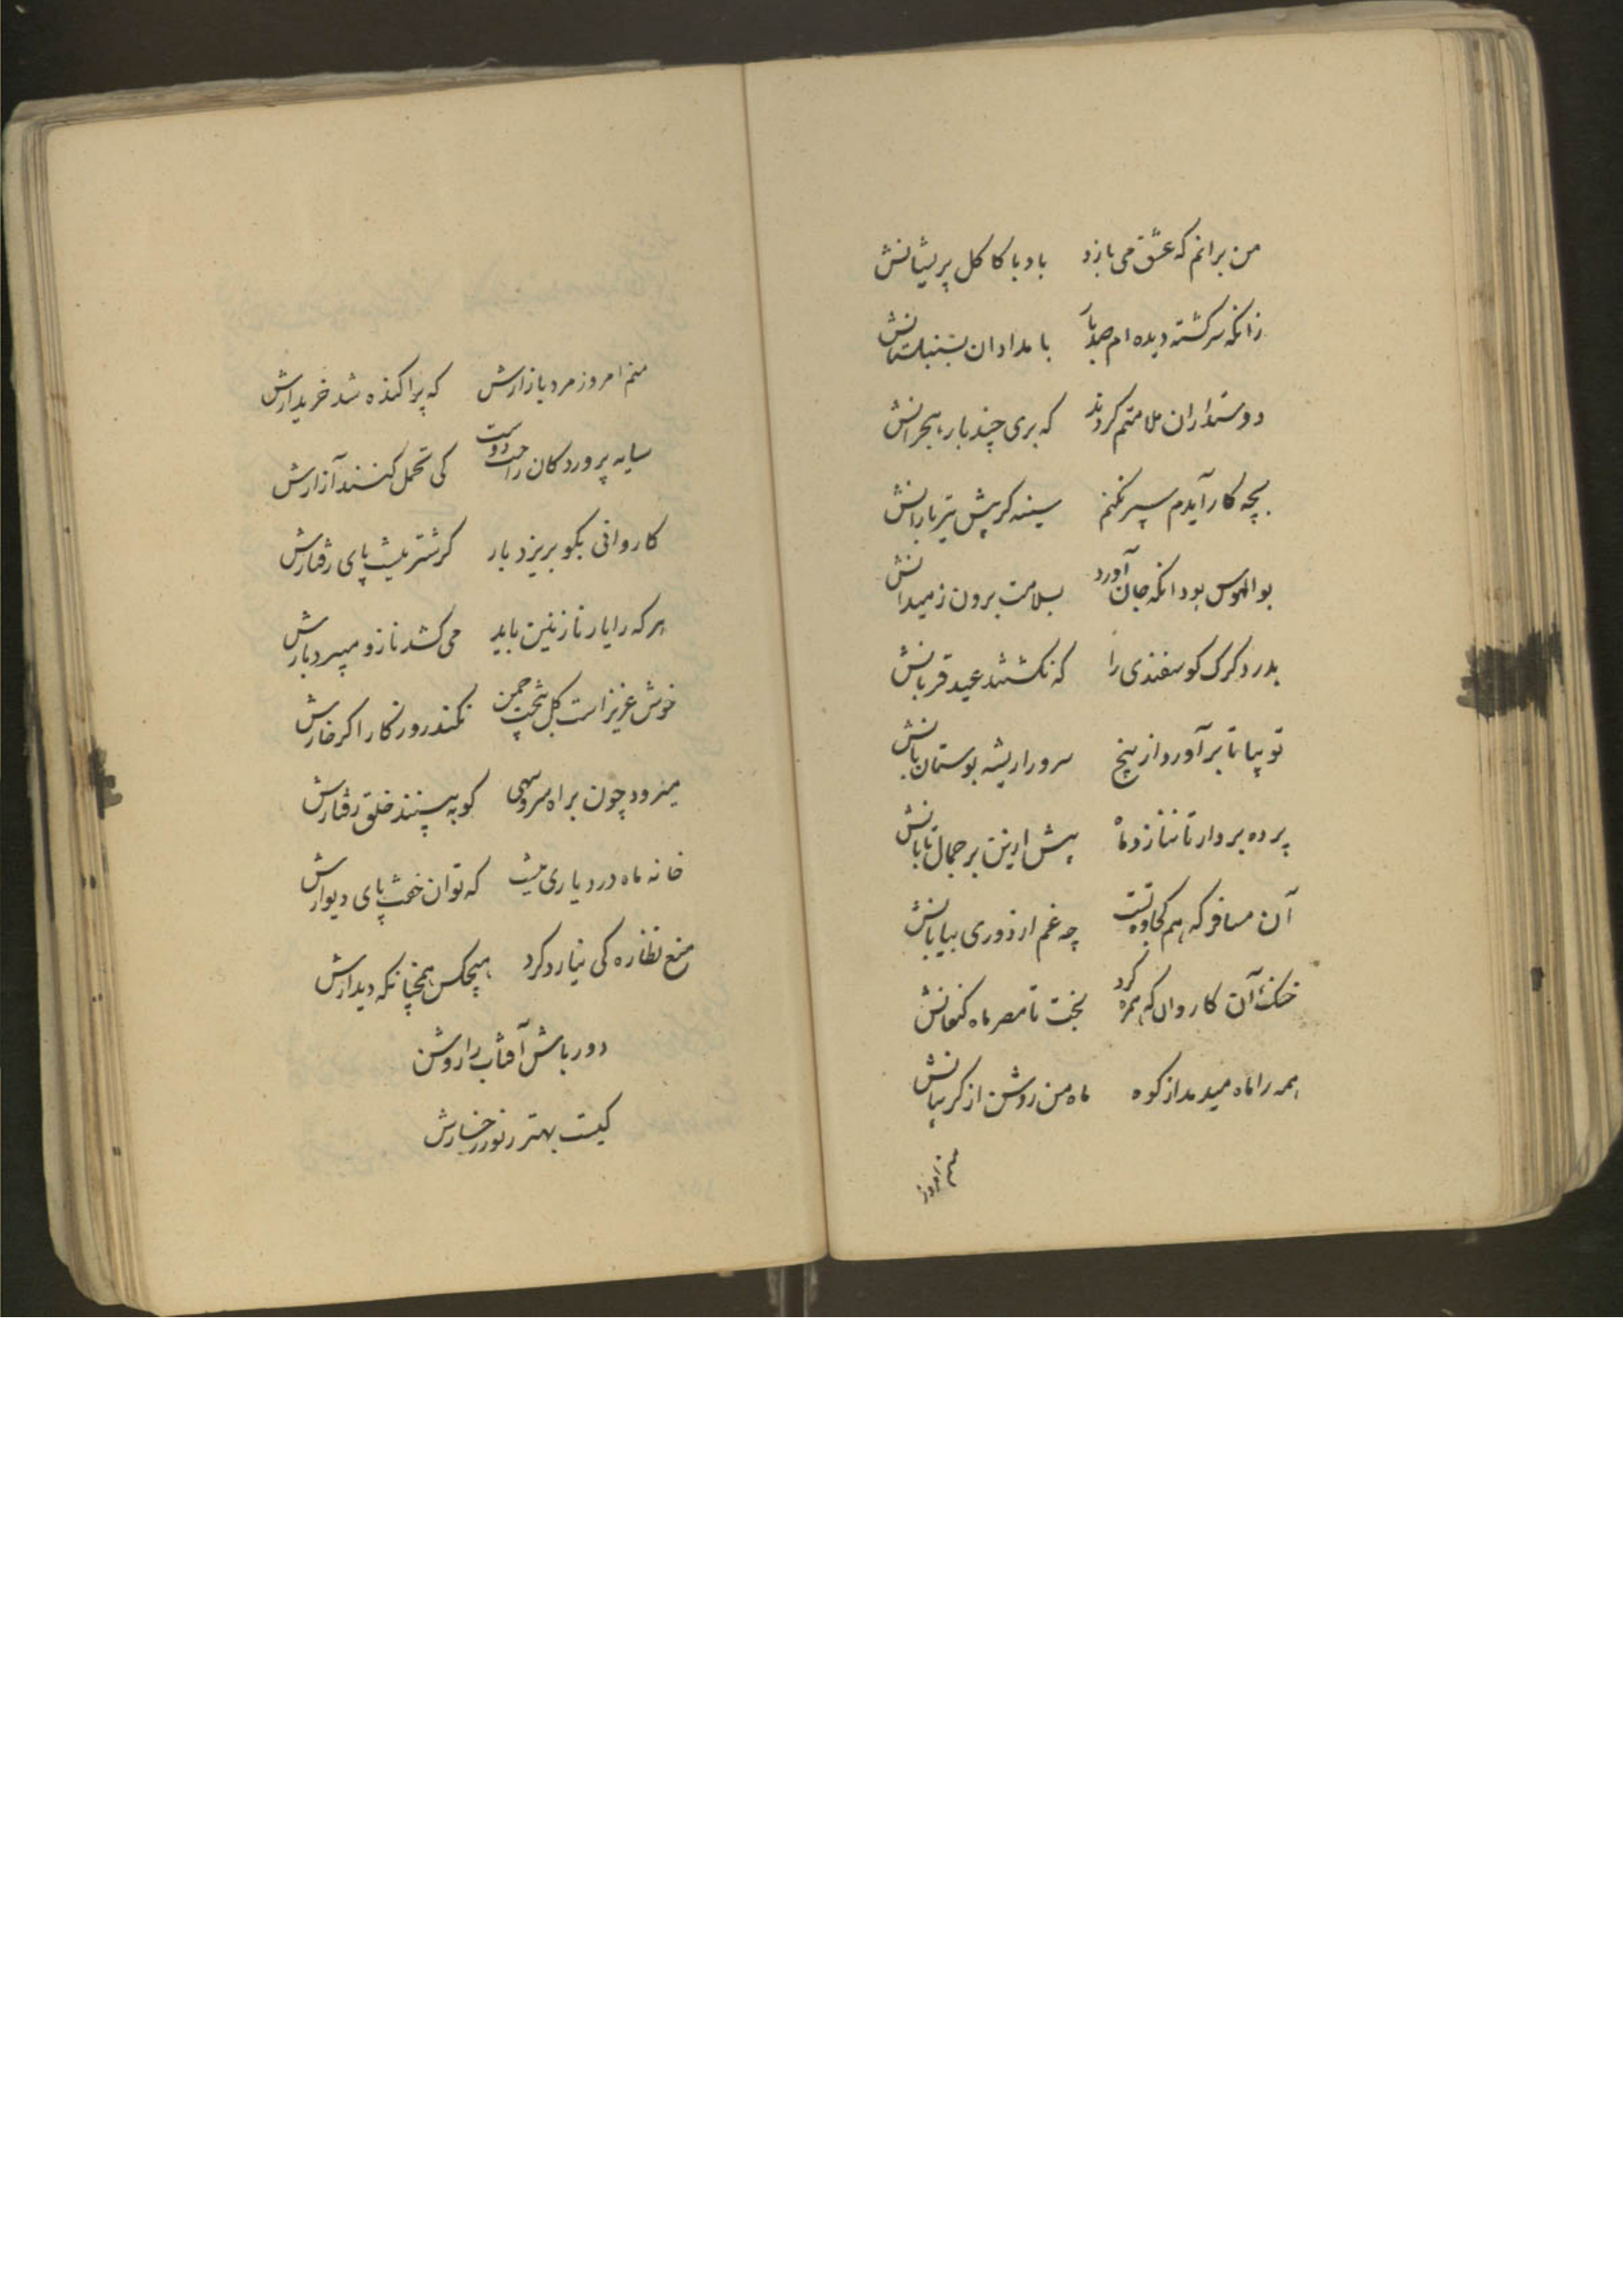 من برانم که عشق می بازد باد با کاکل پریشانش
زانکه سرگشته دیده ام صد بار بامدادان بسنبلستانش
دوستداران ملامتم کردند که بری چند بار هجرانش
بچه کار آیدم سپر نکنم سینه کر پیش تیر بارانش
بوالهوس بود انکه جان آورد بسلامت برون ز میدانش
بدرد کرک کوسفندی را که نکشتند عید قربانش
تو بپا تا برآورد از بیخ سرو را ریشه بوستان بانش
پرده بردار تا ننازد ماه بیش ازین بر جمال تابانش
آن مسافر که هم کجاوه تست چه غم از دوری بیابانش
خنک آن کاروان که همره کرد بخت تا مصر ماه کنعانش
همه را ماه میدمد از کوه ماه من روشن از کریبانش
منم امروز
منم امروز مرد بازارش که پراکنده شد خریدارش
سایه پروردکان راحت دوست کی تحمل کنند آزارش
کاروانی بکو بریزد بار کر شتر نیست پای رفتارش
هر که را یار نازنین باید می کشد ناز و میبرد بارش
خوش عزیز است کل بتخت چمن نکند روزکار اکر خارش
میرود چون براه سرو سهی کو به بینند خلق رفتارش
خانه ماه در دیاری نیست که توان خفت پای دیوارش
منع نظاره کی نیارد کرد هیچکس همچنانکه دیدارش
دور باش آفتاب را روشن
کیست بهتر ز نور رخسارش